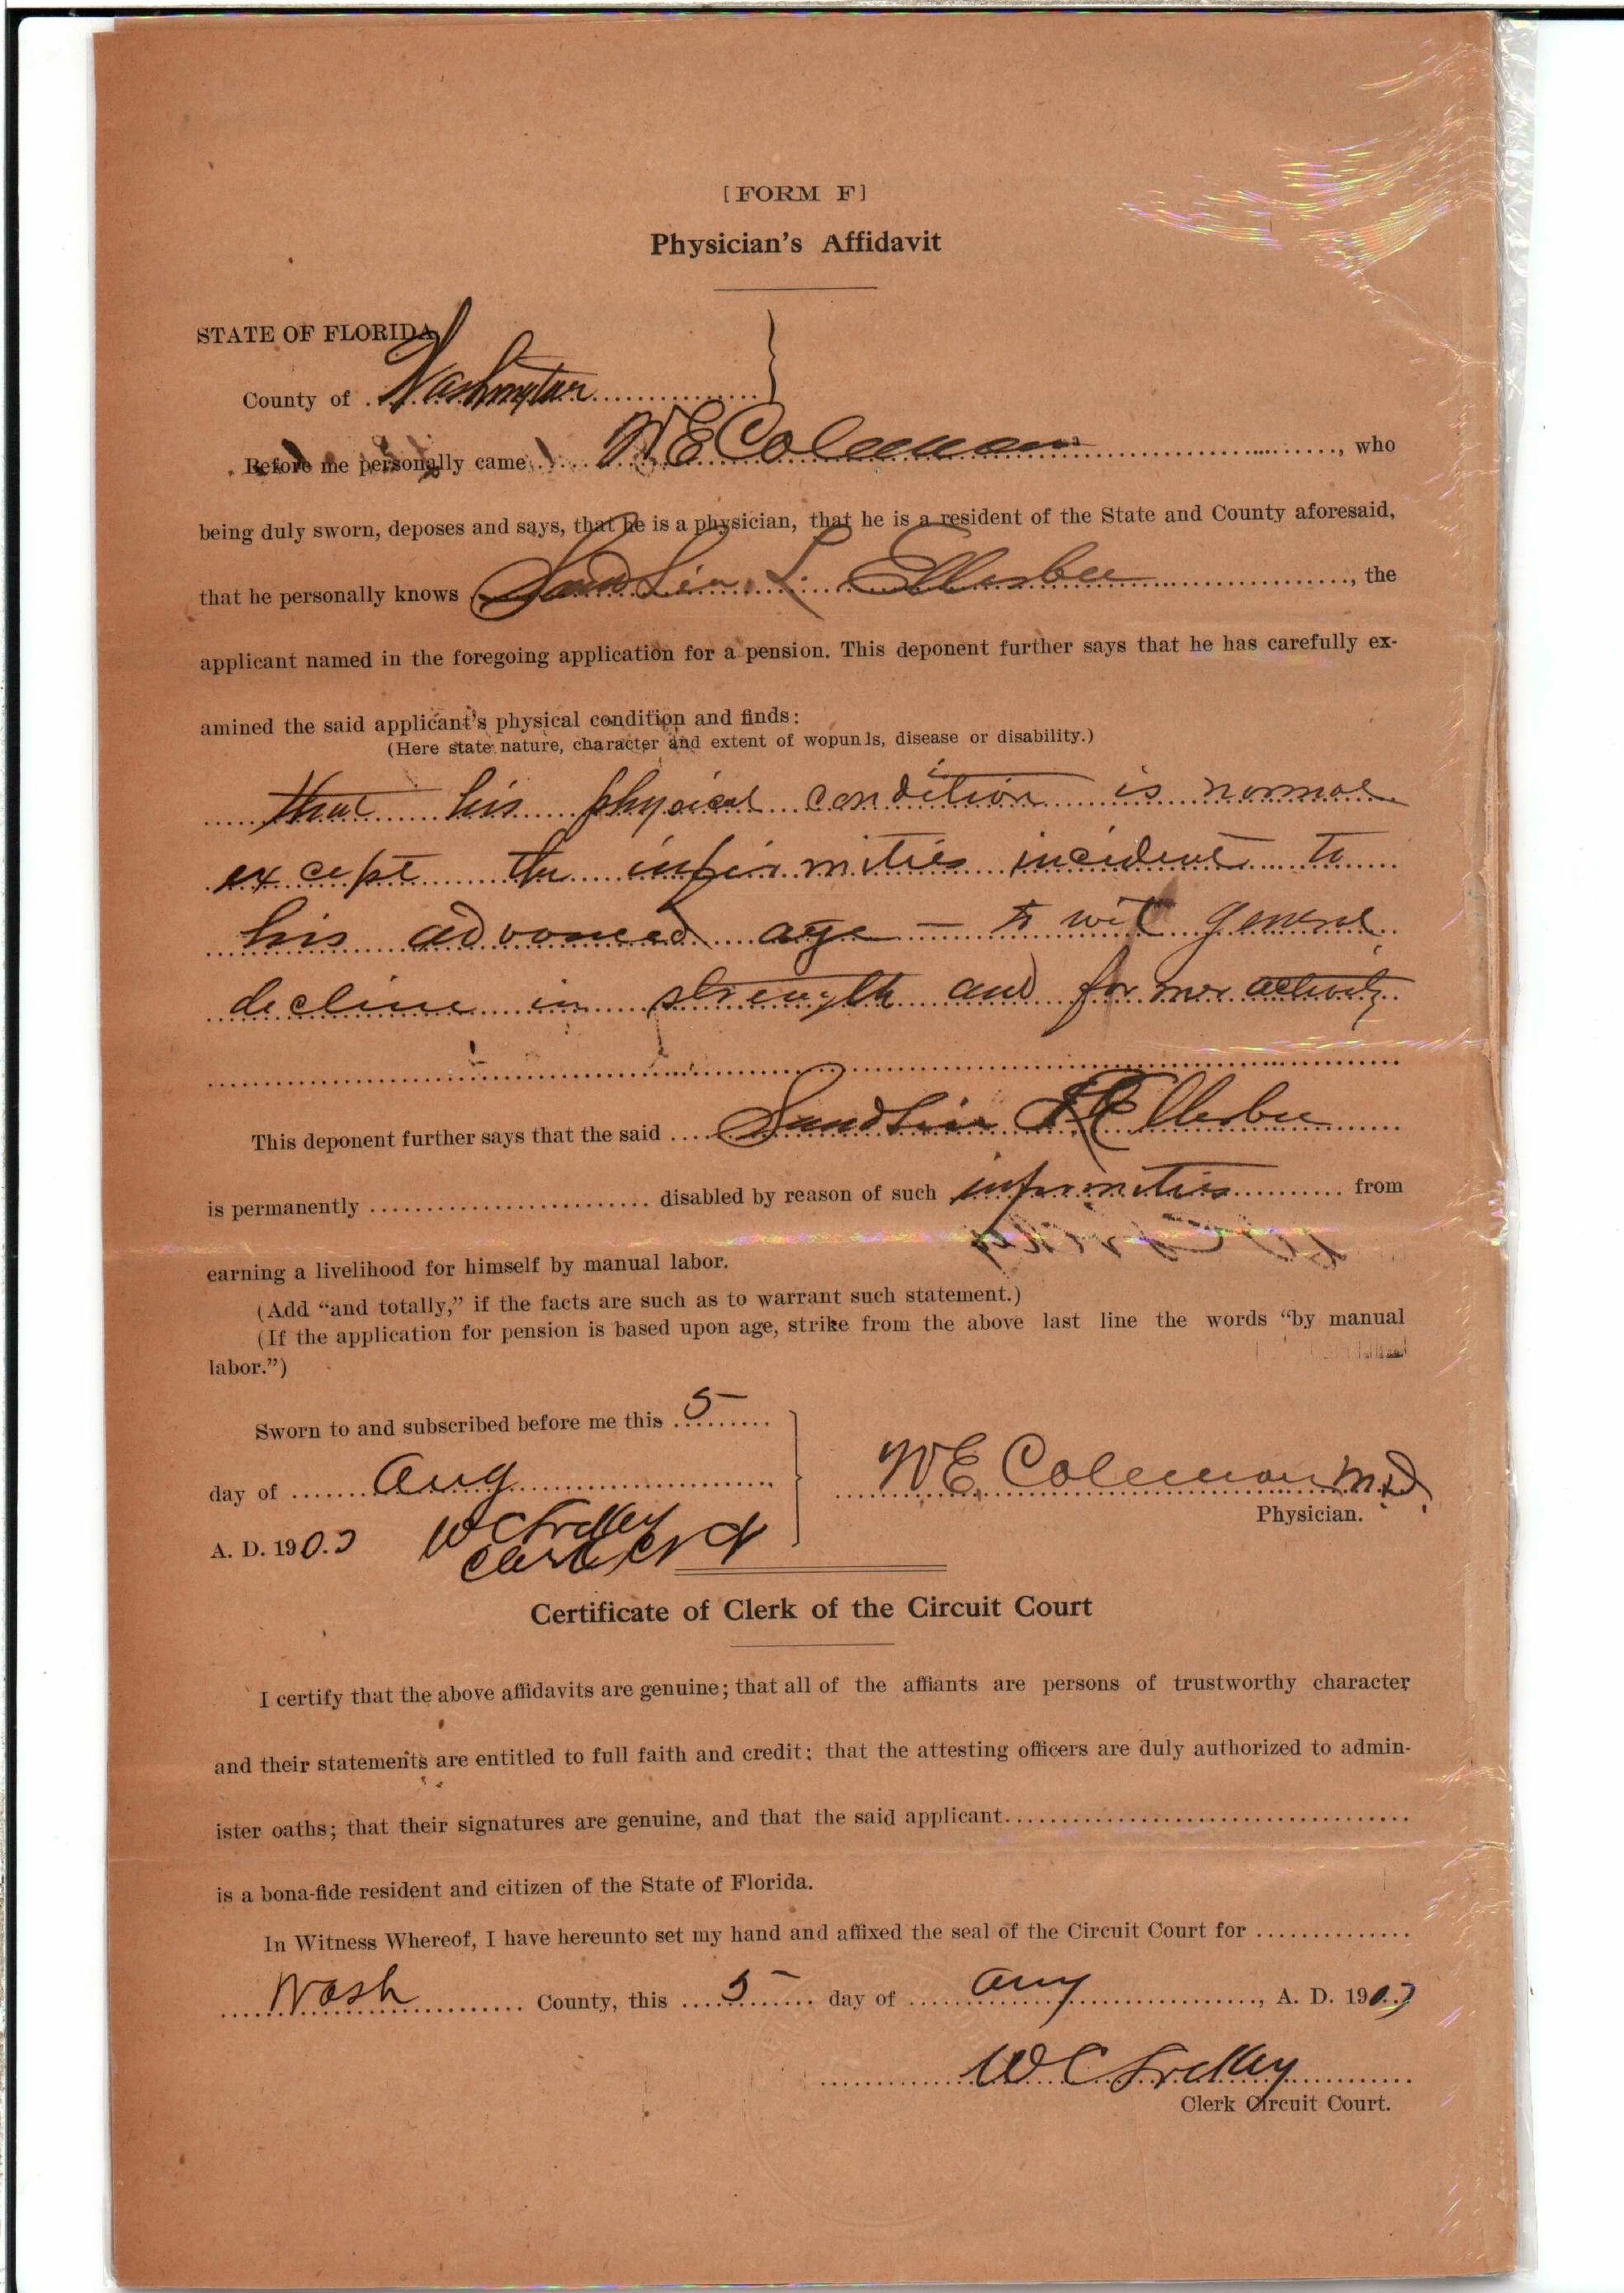 [FORM F]
Physician's Affidavit
STATE OF FLORIDA
County of Washington
Before me personally came W E Coleman, who
being duly sworn, deposes and says, that he is a physician, that he is a resident of the State and County aforesaid,
that he personally knows Sandlin L. Ellerbee, the
applicant named in the foregoing application for a pension. This deponent further says that he has carefully ex-
amined the said applicant's physical condition and finds:
(Here state nature, character and extent of wopunls, disease or disability.)
that his physical condition is normal
except the infirmities incident to
his advanced age — to wit general
decline in strength and former activity
This deponent further says that the said Sandlin L Ellerbee
is permanently disabled by reason of such infirmities from
earning a livelihood for himself by manual labor.
(Add "and totally," if the facts are such as to warrant such statement.)
(If the application for pension is based upon age, strike from the above last line the words "by manual
labor.")
Sworn to and subscribed before me this 5
day of Aug
W E Coleman M.D.
Physician.
A. D. 190
W C
Clerk
Certificate of Clerk of the Circuit Court
I certify that the above affidavits are genuine; that all of the affiants are persons of trustworthy character
and their statements are entitled to full faith and credit; that the attesting officers are duly authorized to admin-
ister oaths; that their signatures are genuine, and that the said applicant
is a bona-fide resident and citizen of the State of Florida.
In Witness Whereof, I have hereunto set my hand and affixed the seal of the Circuit Court for
Wash County, this 5 day of Aug, A. D. 190
W C
Clerk Circuit Court.